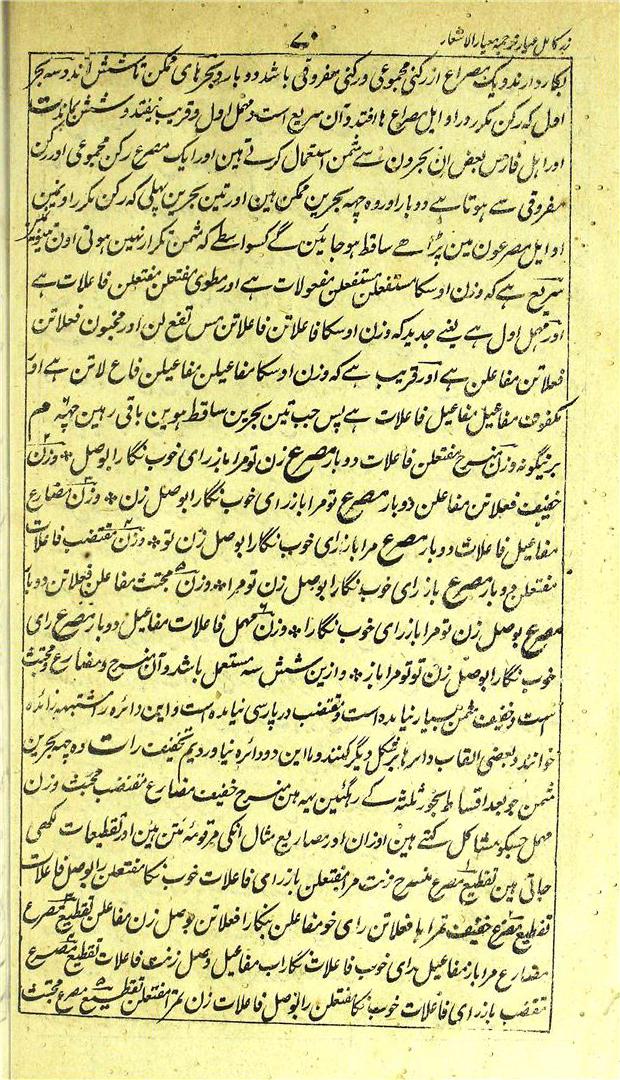 زر کامل عیار ترجمہ معیار الاشعار
۷۰
بکار دارند و یک مصراع از رکنی مجموعی و رکنی مفروقی باشد دو بار و بحرهای ممکن تا شش اند و سه بحر
اول که رکن مکرر در اوایل مصراع ها افتد و آن سریع است و مہمل اول و قریب بیفتد و شش بماند
اور اہل فارس بعض ان بحرون سے مثمن استعمال کرتے ہین اور ایک مصرع رکن مجموعی اور رکن
مفروقی سے ہوتا ہے دو بار اور وہ چہہ بحرین ممکن ہین اور تین بحرین پہلی کہ رکن مکرر اونمین
اوایل مصرعون مین پڑا ہے ساقط ہو جائین گے کسواسطے کہ مثمن تکرار نہین ہوتی اون تینونمین
سریع ہے کہ وزن اوسکا مستفعلن مستفعلن مفعولات ہے اور مطوی مفتعلن مفتعلن فاعلات ہے
اور مہمل اول ہے یعنے جدید کہ وزن اوسکا فاعلاتن فاعلاتن مس تفع لن اور مخبون فعلاتن
فعلاتن مفاعلن ہے اور قریب ہے کہ وزن اوسکا مفاعیلن مفاعیلن فاع لاتن ہے اور
مکفوف مفاعیل مفاعیل فاعلات ہے پس جب تین بحرین ساقط ہوین باقی رہین چہہ م
برینگونہ وزن منسرح مفتعلن فاعلات دو بار مصرع زن تو مرا باز رای خوب نگارا بوصل * وزن
خفیف فعلاتن مفاعلن دو بار مصرع تو مرا باز رای خوب نگارا بوصل زن * وزن مضارع
مفاعیل فاعلات دو بار مصرع مرا باز رای خوب نگارا بوصل زن تو * وزن مقتضب فاعلات
مفتعلن دو بار مصرع باز رای خوب نگارا بوصل زن تو مرا * وزن مجتث مفاعلن فعلاتن دو بار
مصرع بوصل زن تو مرا باز رای خوب نگارا * وزن مہمل فاعلات مفاعیل دو بار مصرع رای
خوب نگارا بوصل زن تو مرا باز * و ازین شش سه مستعمل باشد و آن منسرح و مضارع و مجتث
است و خفیف مثمن بسیار نیامده است و مقتضب در پارسی نیامده است و این دائره را مشتبهه زائده
خوانند و بعضی القاب دایرها بر شکل دیگر کنند و ما این دو دائره نیاوردیم تخفیف را ت وہ چہہ بحرین
مثمن جو بعد اسقاط بحور ثلثہ کے رہگئین یہ ہین منسرح خفیف مضارع مقتضب مجتث وزن
مہمل جسکو مشاکل کہتے ہین اوزان اور مصاریع مثال انکی مرقومۂ متن ہین اور تقطیعات لکھی
جاتی ہین تقطیع مصرع منسرح زن ت مرا مفتعلن باز رای فاعلات خوب نگا مفتعلن را بوصل فاعلات
تقطیع مصرع خفیف تمرا با فعلاتن رای خو مفاعلن بنگارا فعلاتن بوصل زن مفاعلن تقطیع مصرع
مضارع مرا باز مفاعیل رای خوب فاعلات نگاراب مفاعیل وصل زنت فاعلات تقطیع مصرع
مقتضب باز رای فاعلات خوب نگا مفتعلن را بوصل فاعلات زن تمرا مفتعلن تقطیع مصرع مجتث